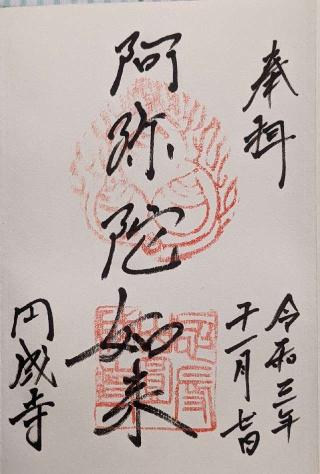 奉拝
令和三年
十一月七日
阿弥陀如来
円成寺